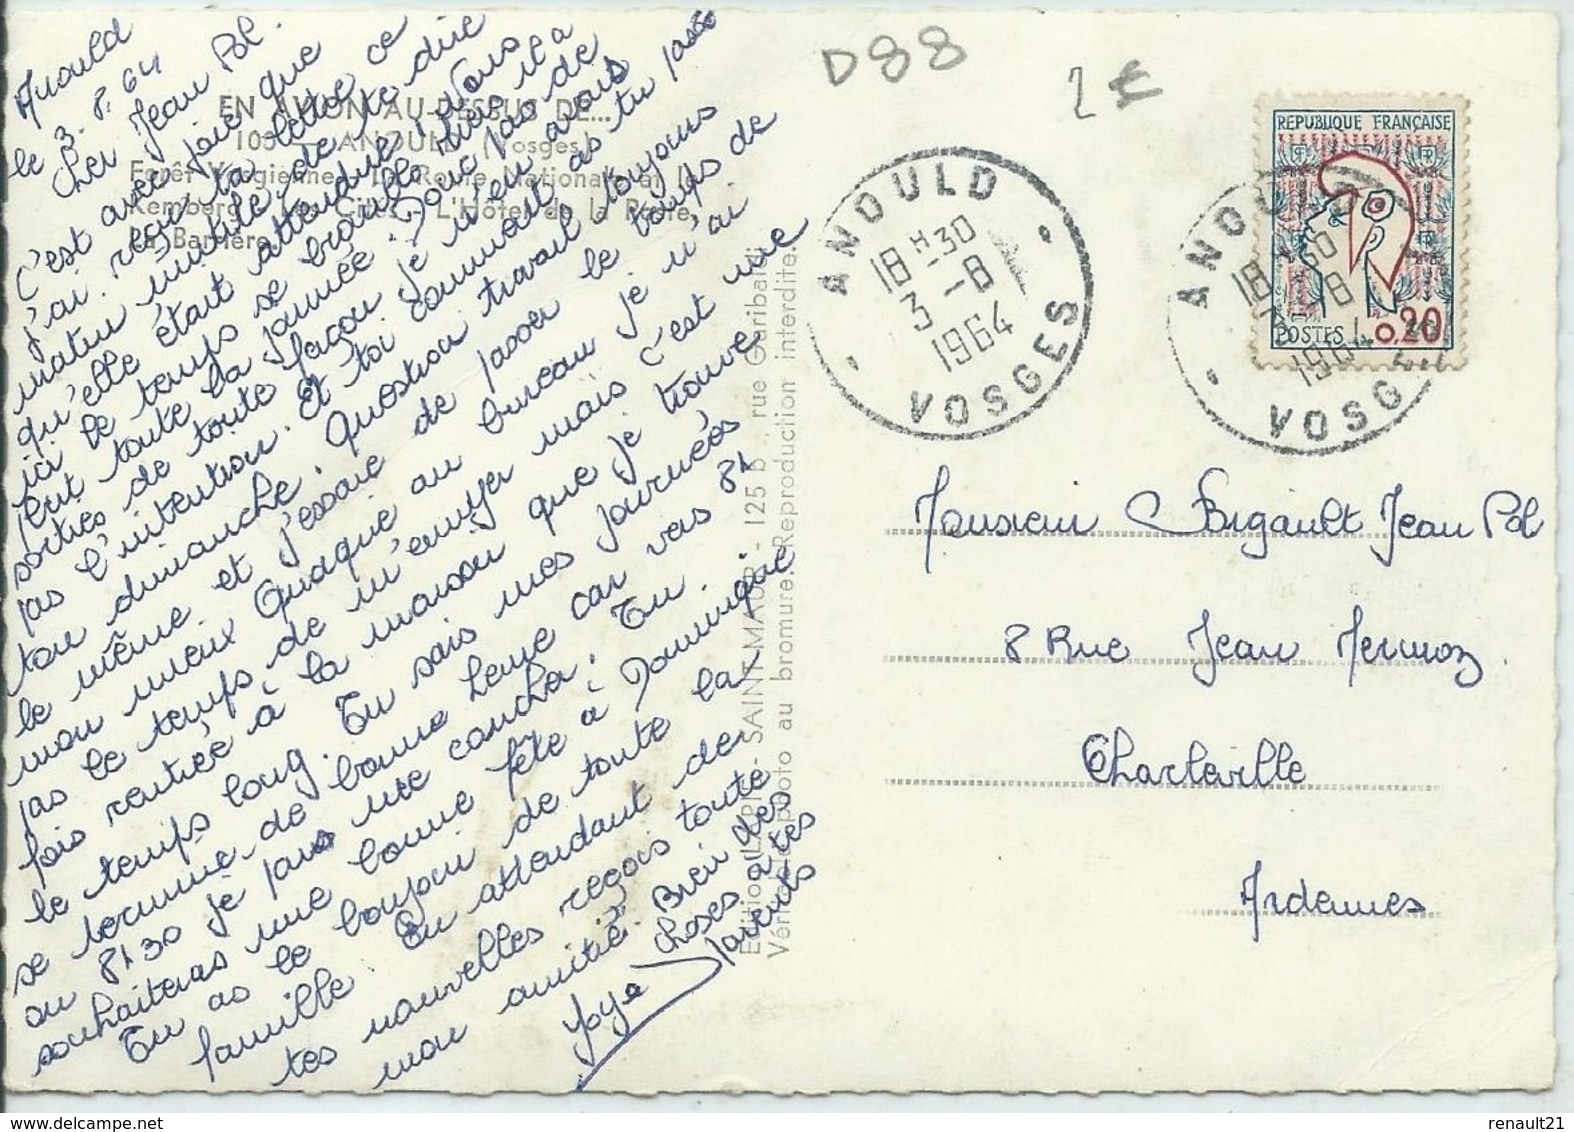 Anould
le 3. 8. 64
Cher Jean Pol.
C'est avec joie que
j'ai reçu ta lettre ce
matin inutile de te dire
qu'elle était attendue. Nous
ici le temps se brouille hier il a
plut toute la journée. Donc pas de
sorties de toute façon je n'en avais
pas l'intention. Et toi comment as tu passé
ton dimanche. Question travail toujours
le même et j'essaie de passer le temps de
mon mieux Quoique au bureau je n'ai
pas le temps de m'ennuyer mais c'est une
fois rentrée à la maison que je trouve
le temps long. Tu sais mes journées
se termine de bonne heure car vers 8h
ou 8h30 je pars me coucher. Tu
souhaiteras une bonne fête à Dominique
Tu as le bonjour de toute la
famille. En attendant de
tes nouvelles reçois toute
mon amitié. Bien des
choses à tes
parents
EN AVION AU-DESSUS DE...
ANOULD (Vosges)
Forêt Vosgienne - La Route Nationale et le
Kemberg - Les Cités - L'Hôtel de la Poste
La Barrière
Edition LAPIE - SAINT-MAUR - 125 b., rue Garibaldi
Véritable photo au bromure. Reproduction interdite.
D88
2€
ANOULD
18 H 30
3 -8
1964
VOSGES
REPUBLIQUE FRANÇAISE
POSTES 0,20
ANOULD
18 H 30
3 -8
1964
VOSGES
Monsieur Forgault Jean Pol
8 Rue Jean Mermoz.
Charleville
Ardennes
renault21